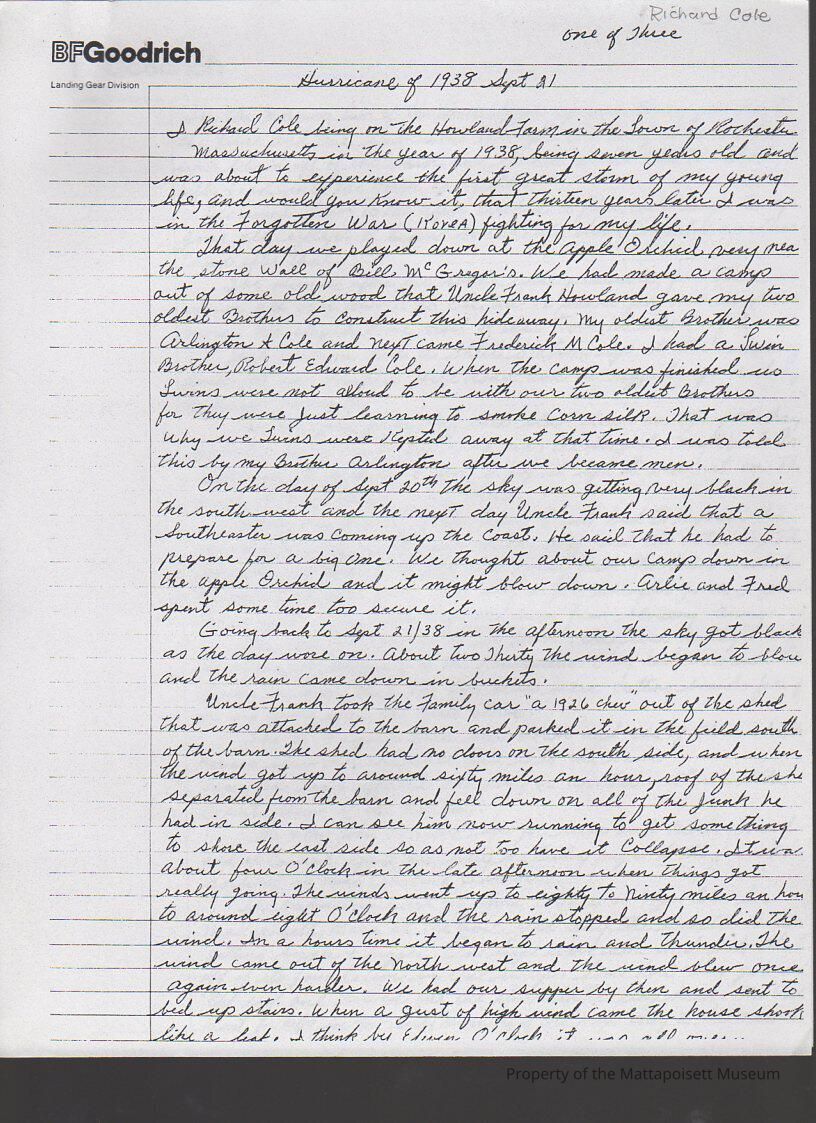 Richard Cole
one of Three
BFGoodrich
Landing Gear Division
Hurricane of 1938 Sept 21
I Richard Cole being on the Howland Farm in the Town of Rochester
Massachusetts in the year of 1938, being seven years old and
was about to experience the first great storm of my young
life, and would you know it, that thirteen years later I was
in the Forgotten War (Korea) fighting for my life.
That day we played down at the Apple Orchid very nea
the stone wall of Bill McGregor's. We had made a camp
out of some old wood that Uncle Frank Howland gave my two
oldest Brothers to construct this hideaway. My oldest Brother was
Arlington A Cole and next came Frederick M Cole. I had a Twin
Brother, Robert Edward Cole. When the camp was finished us
Twins were not alloud to be with our two oldest Brothers
for they were just learning to smoke corn silk. That was
why we Twins were Kepted away at that time. I was told
this by my Brother Arlington after we became men.
On the day of Sept 20th the sky was getting very black in
the south west and the next day Uncle Frank said that a
Southeaster was coming up the coast. He said that he had to
prepare for a big one. We thought about our camp down in
the apple Orchid and it might blow down. Arlie and Fred
spent some time too secure it.
Going back to Sept 21/38 in the afternoon the sky got black
as the day wore on. About two Thirty the wind began to blow
and the rain came down in buckets.
Uncle Frank took the Family car "a 1926 chev" out of the shed
that was attached to the barn and parked it in the field south
of the barn. The shed had no doors on the south side, and when
the wind got up to around sixty miles an hour, roof of the she
separated from the barn and fell down on all of the junk he
had in side. I can see him now running to get something
to shore the east side so as not too have it Collapse. It wa
about four O'Clock in the late afternoon when things got
really going. The winds went up to eighty to Ninty miles an hou
to around eight O'Clock and the rain stopped and so did the
wind. In a hours time it began to rain and thunder. The
wind came out of the North west and the wind blew once
again even harder. We had our supper by then and sent to
bed up stairs. When a gust of high wind came the house shook
like a leaf. I think by Eleven O'Clock it was all
Property of the Mattapoisett Museum